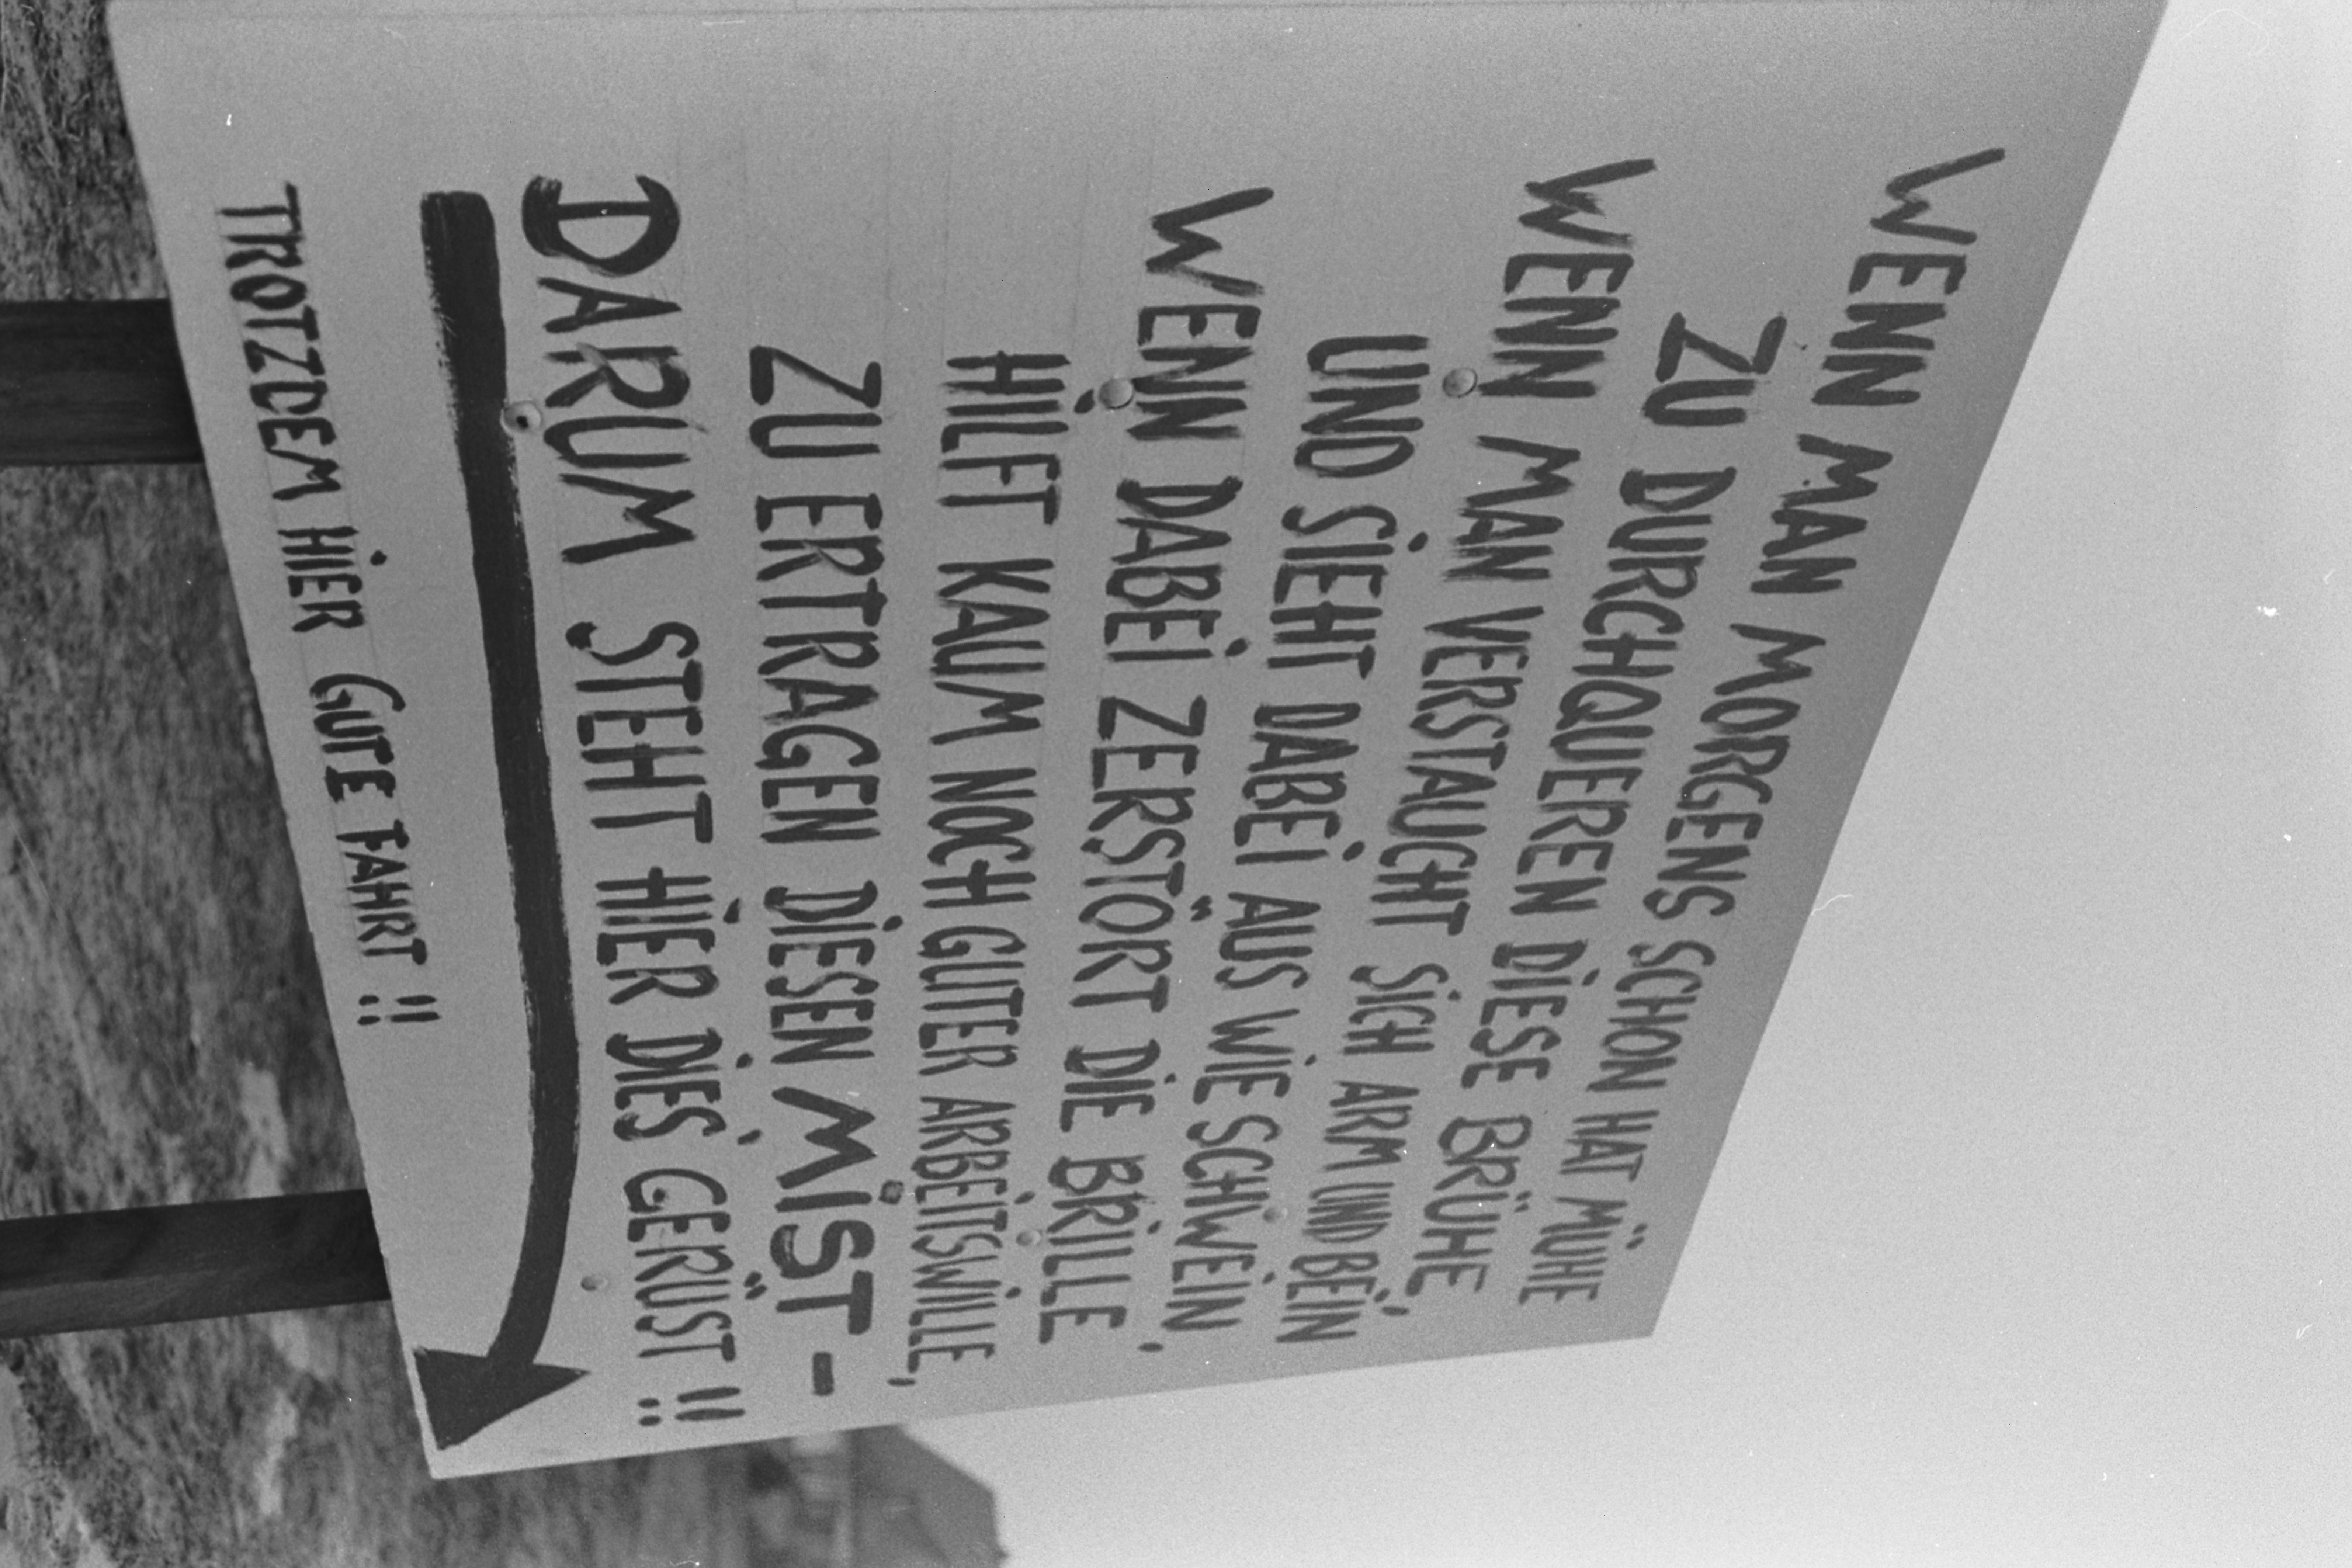 WENN MAN MORGENS SCHON HAT MÜHE
ZU DURCHQUEREN DIESE BRÜHE,
WENN MAN VERSTAUCHT SICH ARM UND BEIN
UND SIEHT DABEI AUS WIE SCHWEIN,
WENN DABEI ZERSTÖRT DIE BRILLE
HILFT KAUM NOCH GUTER ARBEITSWILLE,
ZU ERTRAGEN DIESEN MIST -
DARUM STEHT HIER DIES GERÜST !!
TROTZDEM HIER GUTE FAHRT !!